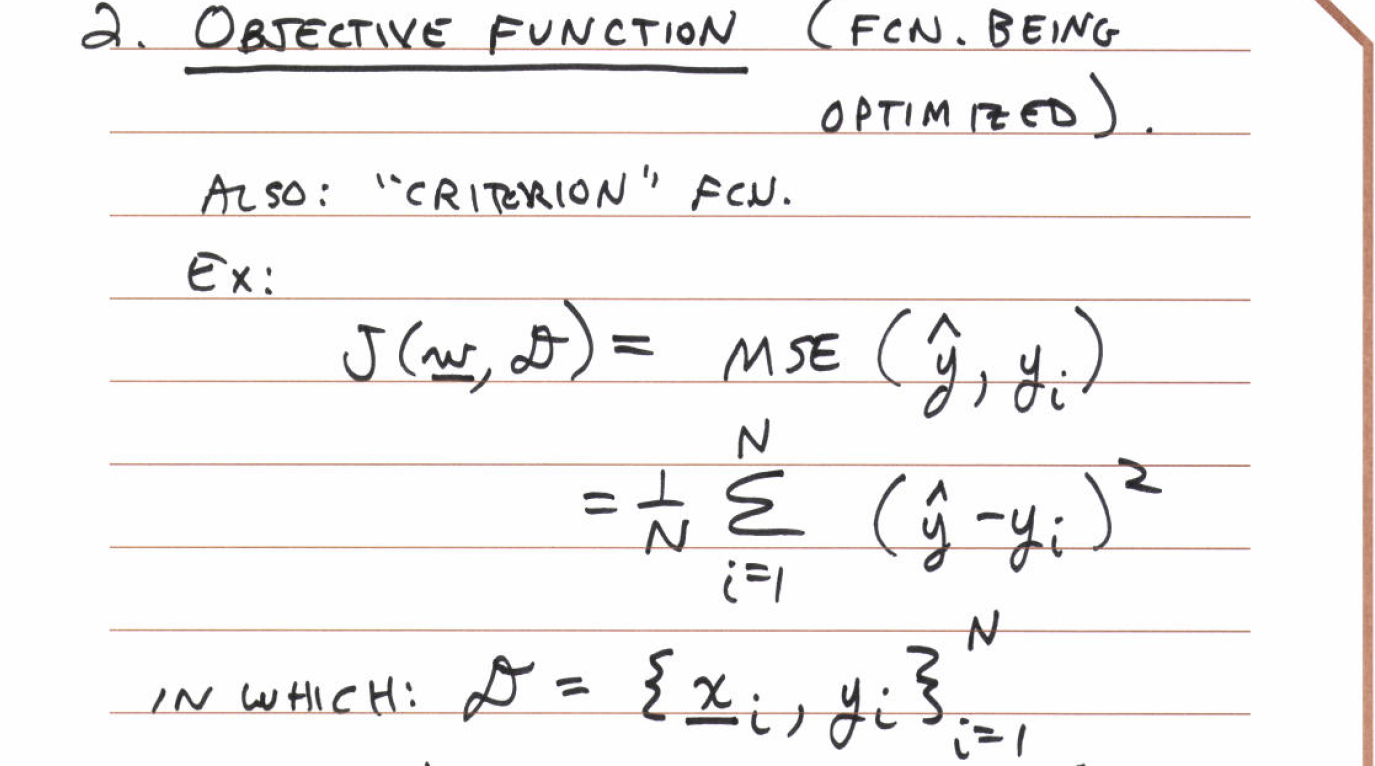 2. OBJECTIVE FUNCTION (FCN. BEING
OPTIMIZED).
ALSO: "CRITERION" FCN.
EX:
J(w̲, 𝒟) = MSE (ŷ, yᵢ)
= 1/N Σᵢ₌₁ᴺ (ŷ - yᵢ)²
IN WHICH: 𝒟 = {x̲ᵢ, yᵢ}ᵢ₌₁ᴺ